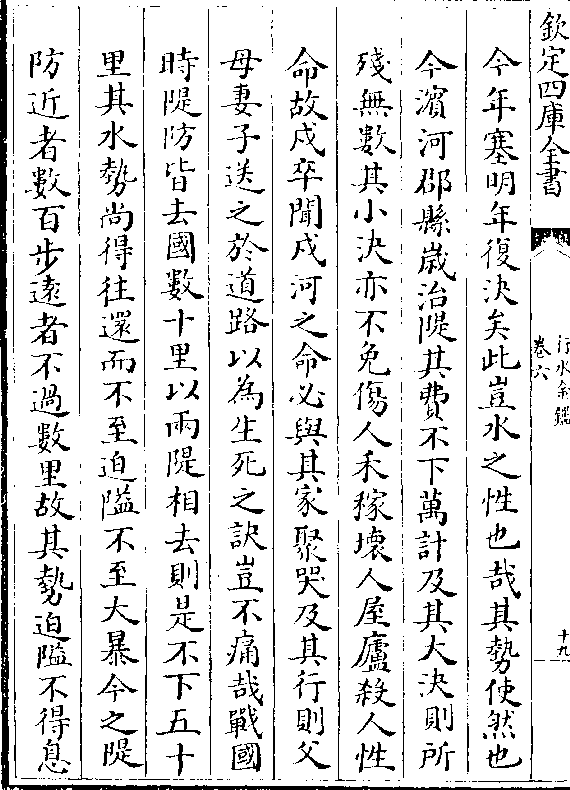 欽定四庫全書
行水金鑑
卷六
十九
今年塞明年復決矣此豈水之性也哉其勢使然也
今濵河郡縣歳治隄其費不下萬計及其大決則所
殘無數其小決亦不免傷人禾稼壊人屋廬殺人性
命故戍卒聞戍河之命必與其家聚哭及其行則父
母妻子送之於道路以為生死之訣豈不痛哉戰國
時隄防皆去國數十里以兩隄相去則是不下五十
里其水勢尚得往還而不至迫隘不至大暴今之隄
防近者數百步逺者不過數里故其勢迫隘不得息